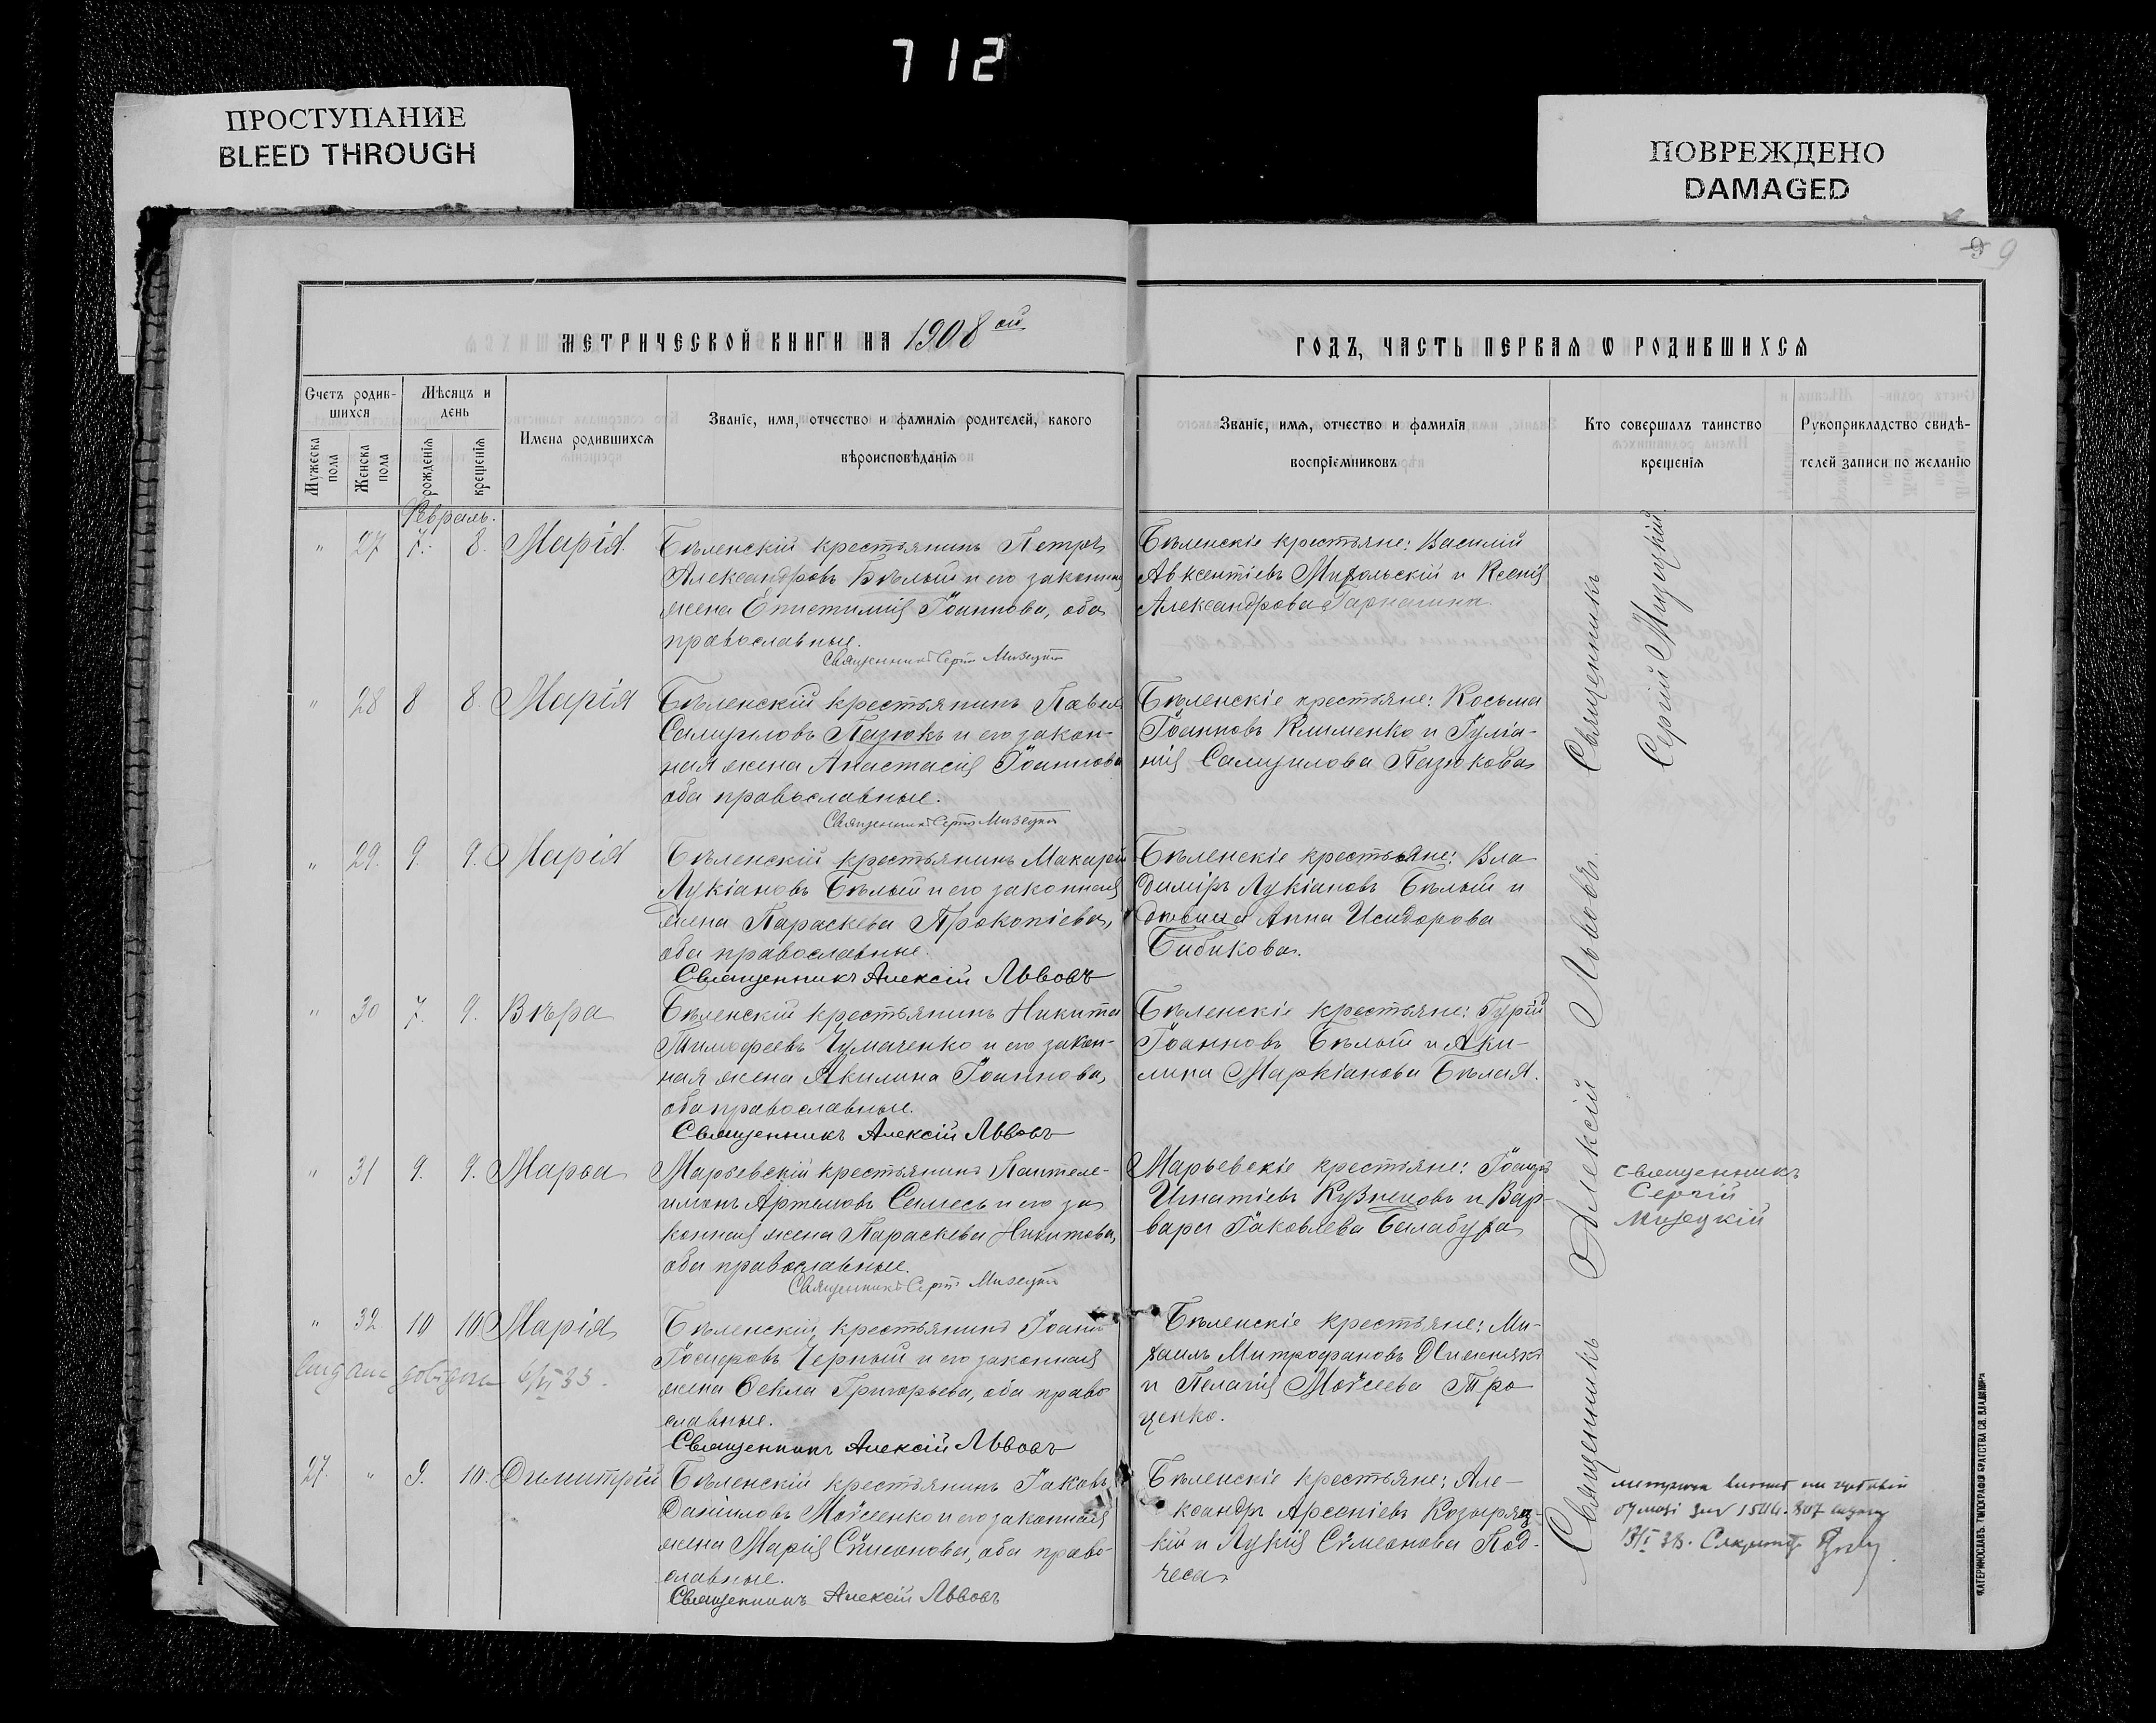 712
ПРОСТУПАНИЕ
BLEED THROUGH
ПОВРЕЖДЕНО
DAMAGED
9 9
МЕТРИЧЕСКОЙ КНИГИ НА 1908 ой
ГОДЪ, ЧАСТЬ ПЕРВАЯ Ѡ РОДИВШИХСЯ
Счетъ родив-
шихся
Мужеска
пола
Женска
пола
Мѣсяцъ и
день
рожденія
крещенія
Имена родившихся
Званіе, имя, отчество и фамилія родителей, какого
вѣроисповѣданія
Званіе, имя, отчество и фамилія
воспріемниковъ
Кто совершалъ таинство
крещенія
Рукоприкладство свидѣ-
телей записи по желанію
Февраль.
" 27 7. 8. Марія.
Бѣленскій крестьянинъ Петръ
Александровъ Бѣлый и его законная
жена Епистимія Іоаннова, оба
православные.
Священникъ Сергій Мизецкій
Бѣленскіе крестьяне: Василій
Авксентіевъ и Ксенія
Александрова
" 28 8 8. Марія
Бѣленскій крестьянинъ Павелъ
Самуиловъ Пазюкъ и его закон-
ная жена Анастасія Іоаннова
оба православные.
Священникъ Сергій Мизецкій
Бѣленскіе крестьяне: Косьма
Іоанновъ Клименко и Іуліа-
нія Самуилова Пазюкова
" 29. 9. 9. Марія
Бѣленскій крестьянинъ Макарій
Лукіановъ Бѣлый и его законная
жена Параскева Прокопіева,
оба православные.
Священникъ Алексій Львовъ
Бѣленскіе крестьяне: Вла-
диміръ Лукіановъ Бѣлый и
дѣвица Анна Исидорова
Бибикова.
" 30 7. 9. Вѣра
Бѣленскій крестьянинъ Никита
Тимофеевъ Чумаченко и его закон-
ная жена Акилина Іоаннова,
оба православные.
Священникъ Алексій Львовъ
Бѣленскіе крестьяне: Гурій
Іоанновъ Бѣлый и Аки-
лина Маркіанова Бѣлая.
" 31 9. 9. Марѳа
Марьевскій крестьянинъ Пантеле-
имонъ Артемовъ Семесь и его за
конная жена Параскева Никитова,
оба православные.
Священникъ Сергій Мизецкій
Марьевскіе крестьяне:
Игнатіевъ Кузнецовъ и Вар-
вара Іаковлева Балабуха
" 32. 10 10. Марія
6/VI 33.
Бѣленскій крестьянинъ Іоаннъ
Черный и его законная
жена Ѳекла Григорьева, оба право
славные.
Священникъ Алексій Львовъ
Бѣленскіе крестьяне: Ми-
хаилъ Митрофановъ
и Пелагія Моѵсеева Тро
ценко.
27. " 9. 10. Димитрій
Бѣленскій крестьянинъ Іаковъ
Даніиловъ Моѵсеенко и его законная
жена Марія Сѵмеонова, оба право-
славные.
Священникъ Алексій Львовъ
Бѣленскіе крестьяне: Але-
ксандръ Арсеніевъ
кій и Лукія Сѵмеонова Под-
чеса
Священникъ
Сергій Мизецкій.
Священникъ Алексій Львовъ.
священникъ
Сергій
Мизецкій
ЕКАТЕРИНОСЛАВЪ. ТИПОГРАФІЯ БРАТСТВА СВ. ВЛАДИМІРА